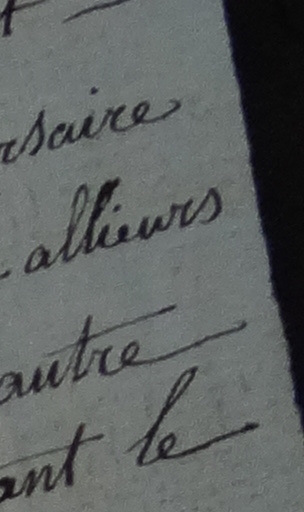 rsaire
allieurs
autre
ant le